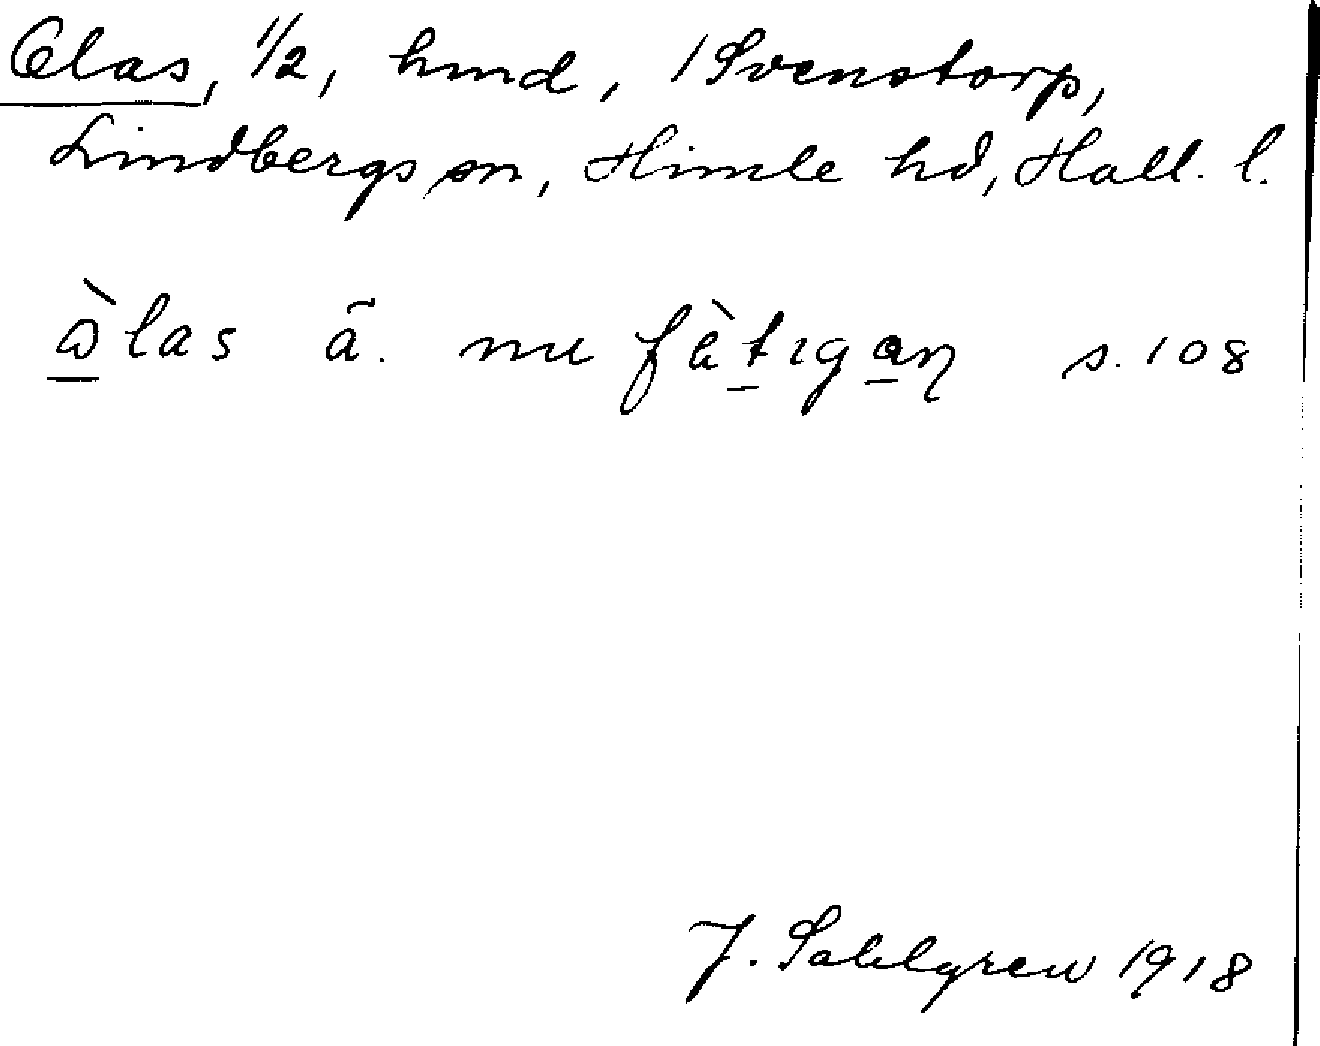 Olas, 1/2, hmd, 1 Svenstorp,
Lindbergs sn, Himle hd, Hall. l.
ὼlas ã. nu fàtıgan s. 108
J. Sahlgren 1918